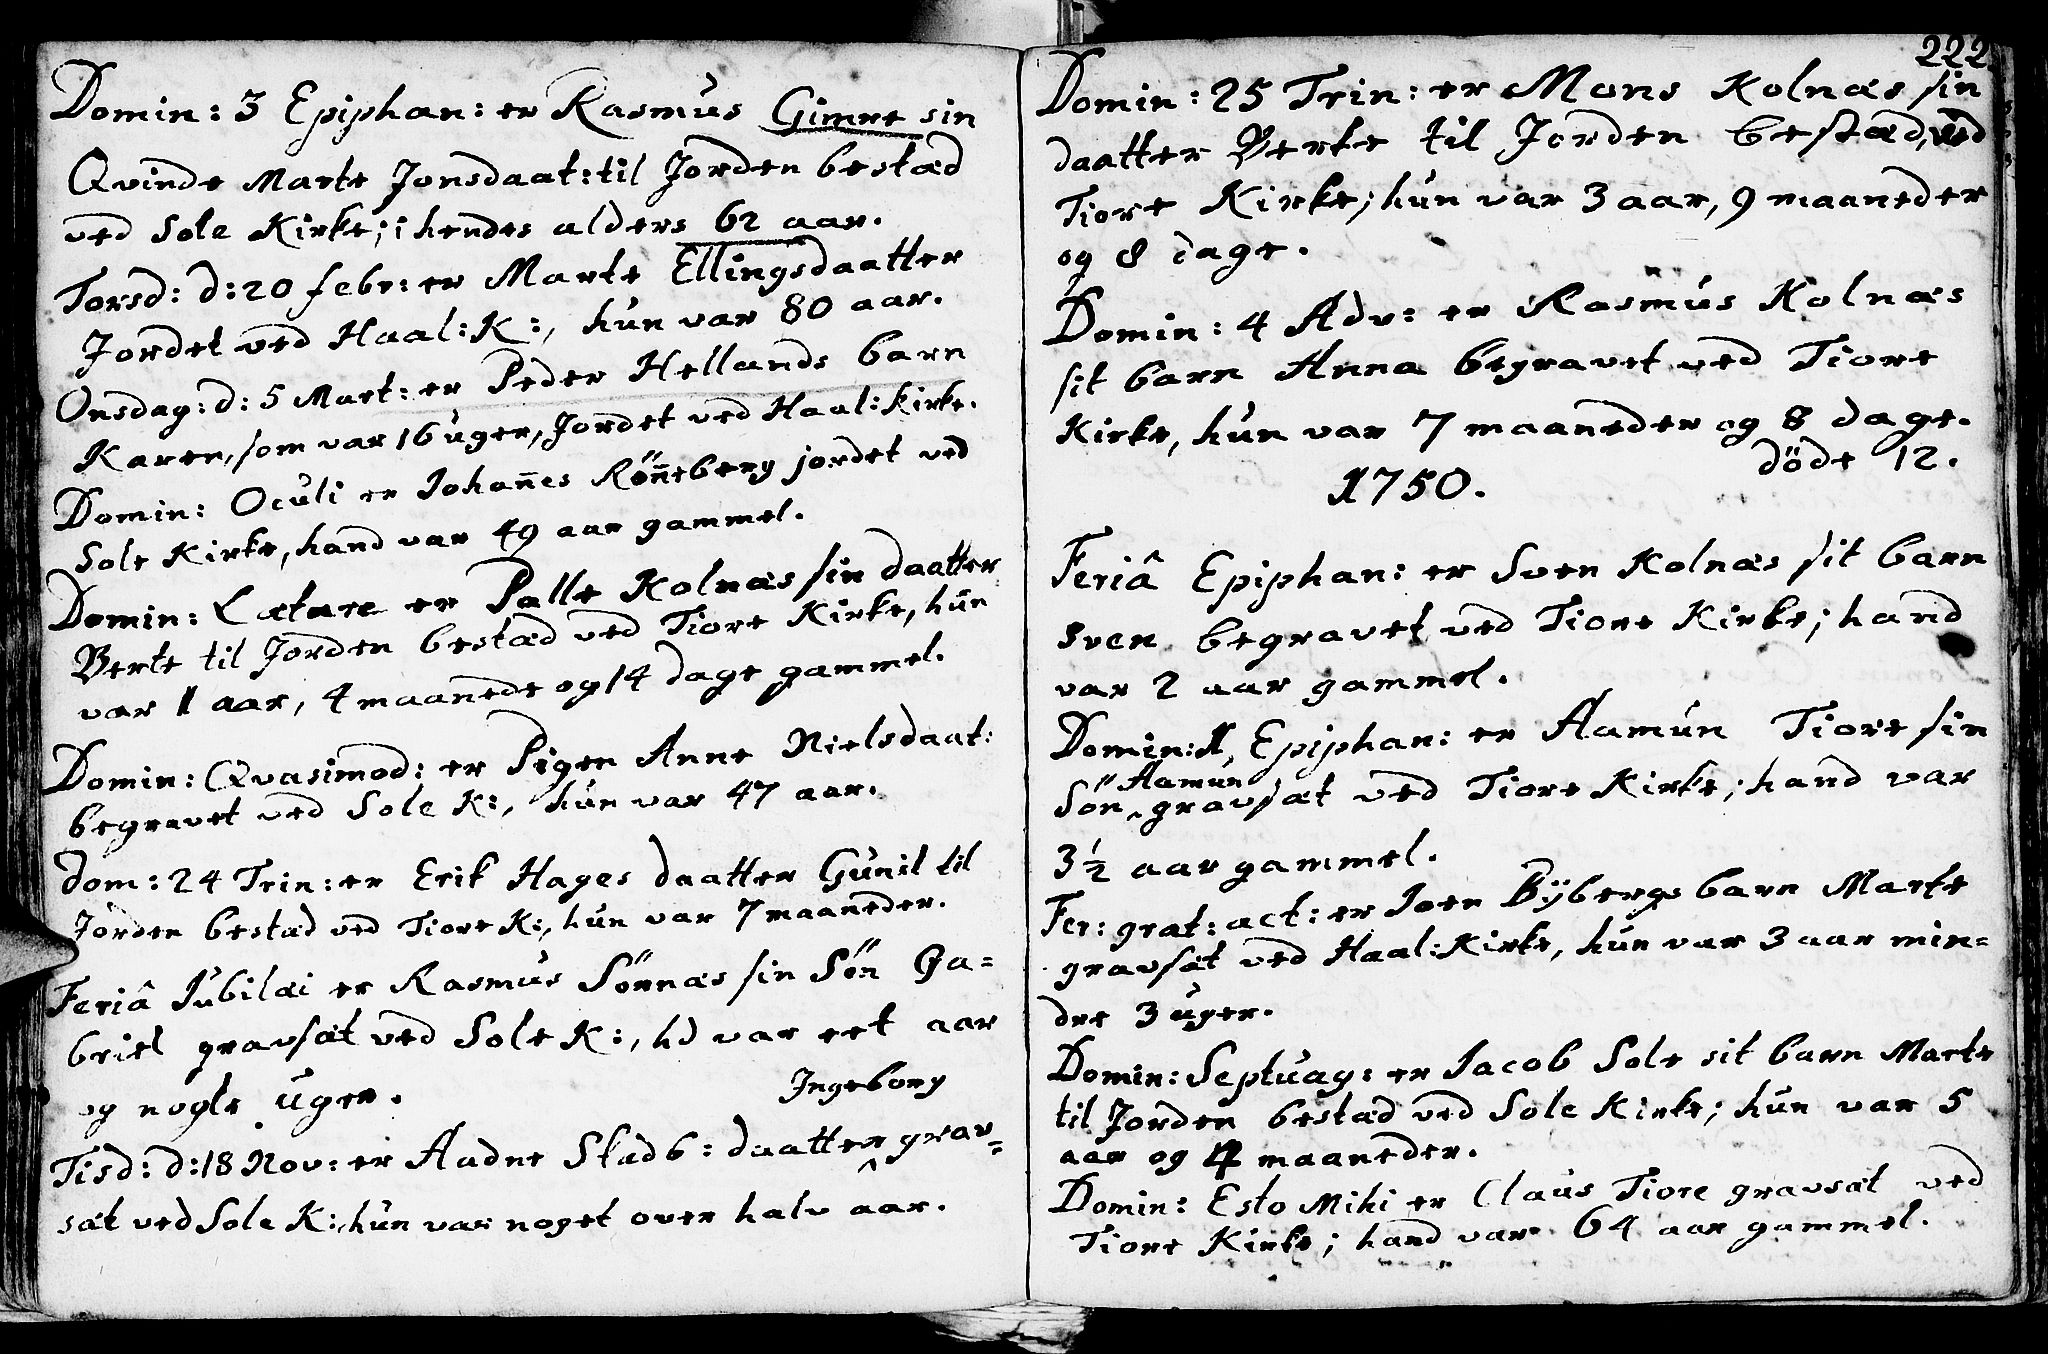 Domin: 3 Epiphan: er Rasmus Gimre sin
Qvinde Marte Jonsdaat: til Jorden bestæd
ved Sole Kirke; i hendes alders 62 aar.
Torsd: d: 20 febr: er Marte Ellingsdaatter
Jordet ved Haal: K:, hun var 80 aar.
Onsdag: d: 5 Mart: er Peder Hellands barn
Karen, som var 16 uger, Jordet ved Haal: Kirke.
Domin: Oculi er Johañes Röñeberg jordet ved
Sole Kirke, hand var 49 aar gammel.
Domin: Lætare er Palle Kolnæs sin daatter
Berte til Jorden bestæd ved Tiore Kirke, hun
var 1 aar, 4 maanede og 14 dage gammel.
Domin: Qvasimod: er Pigen Anne Nielsdaat:
begravet ved Sole K:, hun var 47 aar.
Dom: 24 Trin: er Erik Hages daatter Gunil til
Jorden bestæd ved Tiore K:, hun var 7 maaneder.
Feriâ Jubilæi er Rasmus Sörnæs sin Sön Ga=
briel gravsat ved Sole K:, hd var eet aar
og nogle uger.
Ingeborg
Tisd: d: 18 Nov: er Aadne Skadb: daatter ^ grav=
sæt ved Sole K:, hun var noget over halv aar.
222.
Domin: 25 Trin: er Mons Kolnæs sin
daatter Berte til Jorden bestæd, ved
Tiore Kirke; hun var 3 aar, 9 maaneder
og 8 dage.
Domin: 4 Adv: er Rasmus Kolnæs
sit barn Anna begravet ved Tiore
Kirke, hun var 7 maaneder og 8 dage.
döde 12.
1750.
Feriâ Epiphan: er Sven Kolnæs sit barn
Sven begravet ved Tiore Kirke; hand
var 2 aar gammel.
Domin: 1, Epiphan: er Aamun Tiore sin
Aamun
Sön ^ gravsat ved Tiore Kirke; hand var
3½ aar gammel.
Fer: grat: act: er Joen Bÿbergs barn Marte
gravsat ved Haal: Kirke, hun var 3 aar min=
dre 3 uger.
Domin: Septuag: er Jacob Sole sit barn Marte
til Jorden bestæd ved Sole Kirke; hun var 5
aar og 4 maaneder.
Domin: Esto Mihi er Claus Tiore gravsat ved
Tiore Kirke; hand var 64 aar gammel.